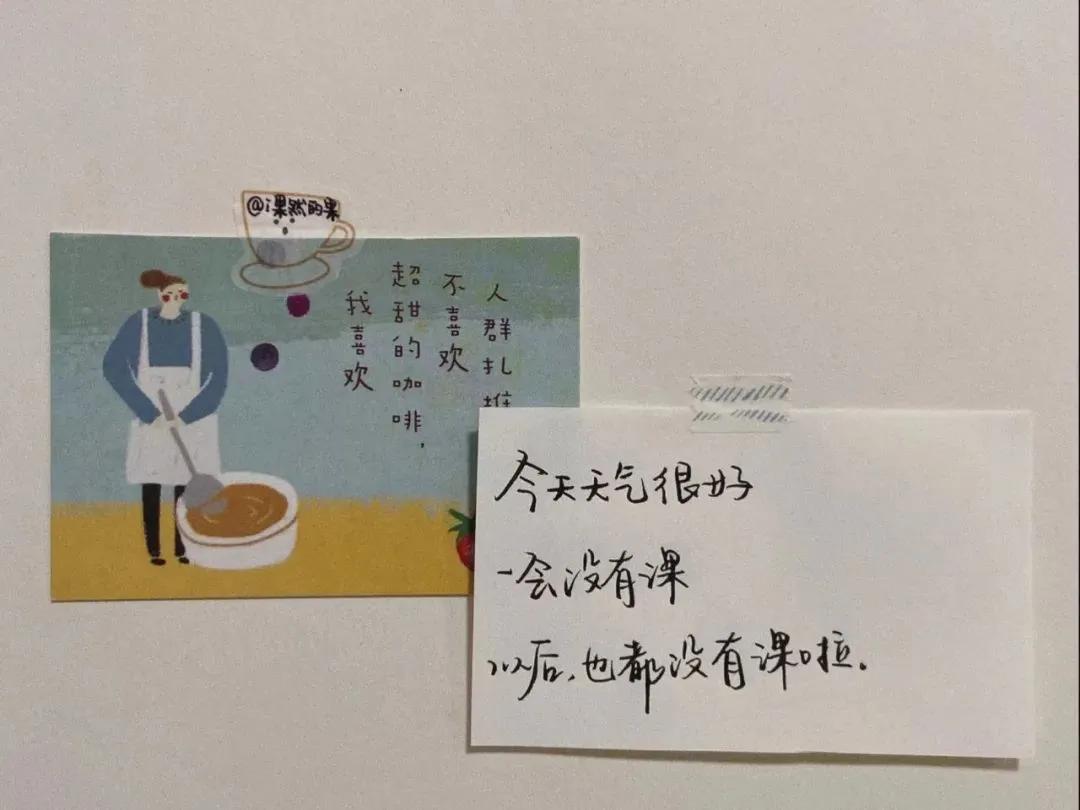 @i果然的果
人群扎堆
不喜欢
超甜的咖啡，
我喜欢
今天天气很好
一会没有课
以后，也都没有课啦。